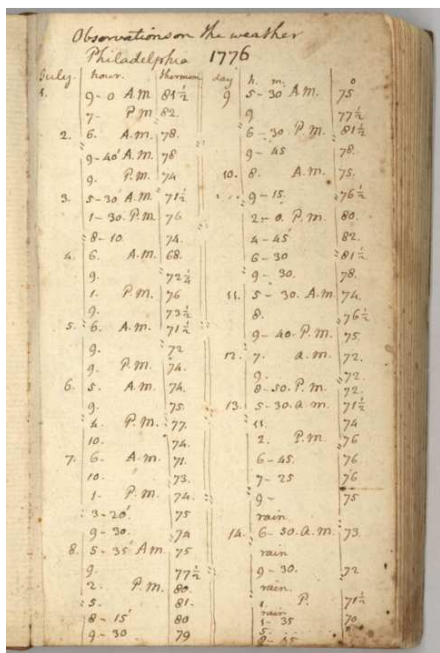 Observations on the weather
Philadelphia 1776
July. hour. thermom
1. 9-0 A.M. 81½
7- P.M. 82.
2. 6. A.M. 78.
9-40' A.M. 78
9. P.M. 74
3. 5-30 A.M. 71½
1-30. P.M. 76
8-10. 74.
4. 6. A.M. 68.
9. 72¼
1. P.M. 76
9. 73½
5. 6. A.M. 71½
9. 72
9. P.M. 74.
6. 5. A.M. 74.
9. 75.
4. P.M. 77.
10. 74.
7. 6. A.M. 71.
10. 73.
1. P.M. 74.
3-20' 75
9-30. 74
8. 5-35' A.M. 75
9. 77½
2. P.M. 80.
5. 81.
8-15' 80
9-30 79
day h. m. o
9 5-30 A.M. 75
9 77½
6-30 P.M. 81½
9-45 78.
10. 8. A.M. 75.
9-15. 76½
2-0. P.M. 80.
4-45' 82.
6-30 81½
9-30. 78.
11. 5-30. A.M. 74.
8. 76½
9-40. P.M. 75.
12. 7. a.m. 72.
9. 72.
8-50. P.M. 72.
13. 5-30. a.m. 71½
11. 74
2. P.M. 76
6-45. 76
7-25 76
9- 75
rain
14. 6-30. a.m. 73.
rain
9-30. 72
rain.
1. P. 71½
rain
1-35 70
5.